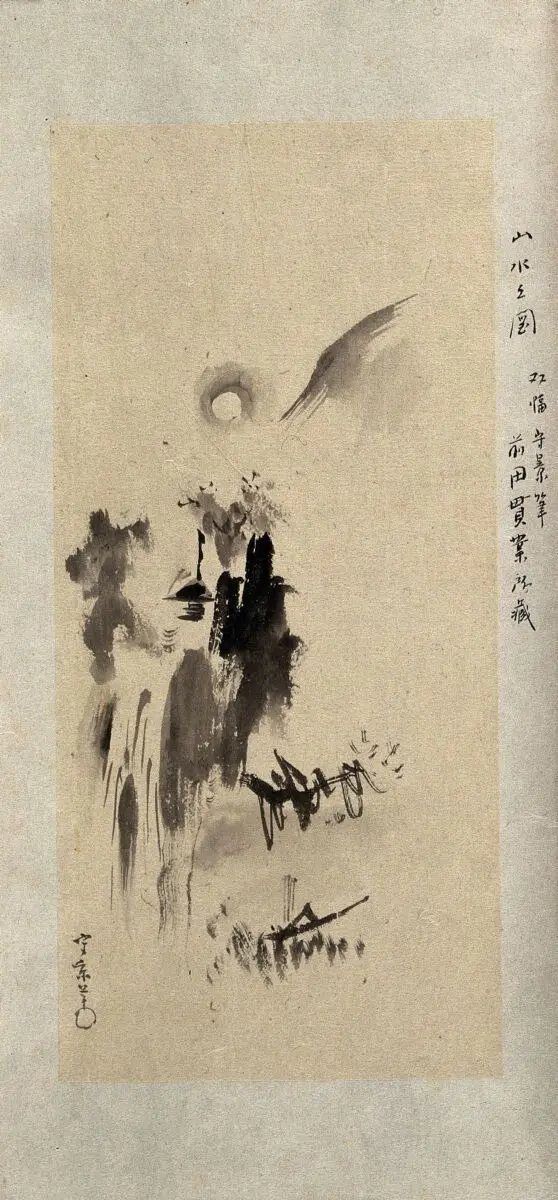 山水之図
双幅 守景筆
前田貫業所蔵
守景筆